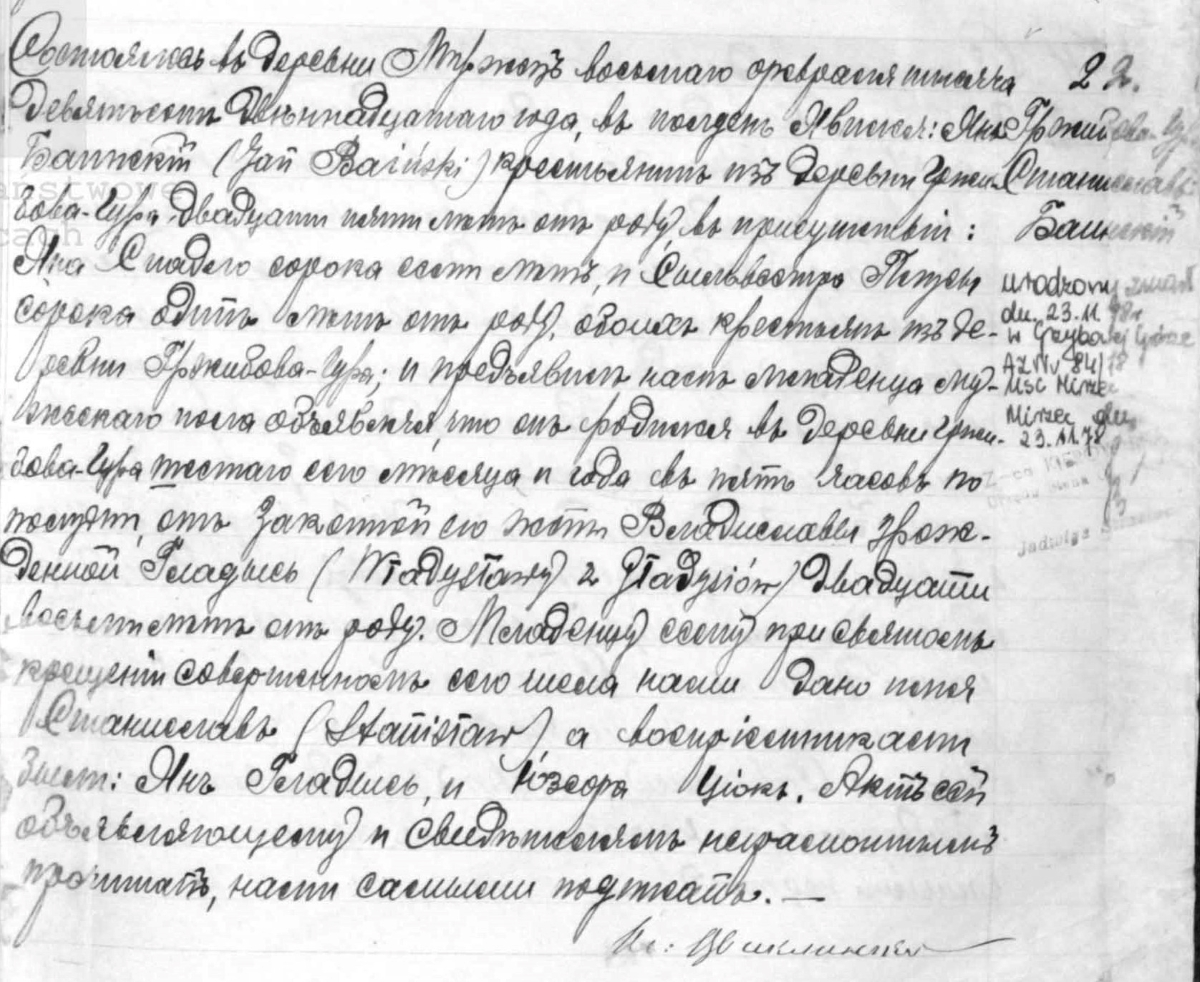 Состоялось въ деревни Миржецъ восьмаго февраля тысяча
девятьсотъ двѣннадцатаго года, въ полдень. Явился: Янъ
Баинскій (Jan Baiński) крестьянинъ изъ деревни Гржи-
бова-Гура, двадцати пяти лѣтъ отъ роду, въ присутствіи:
Яна сорока лѣтъ, и Сильвестра
сорока одинъ лѣтъ отъ роду, обоихъ крестьянъ изъ де-
ревни Гржибова-Гура; и предъявилъ намъ младенца му-
жескаго пола объявляя, что онъ родился въ деревни Гржи-
бова-Гура шестаго сего мѣсяца и года въ пять часовъ по
полудни, отъ законной его жены Владиславы урож-
денной Гладысь (Władysławy z Gładysiów) двадцати
восьми лѣтъ отъ роду. Младенцу сему при святомъ
крещеніи совершенномъ сего числа нами дано имя
Станиславъ (Stanisław), а воспріемниками
были: Янъ Гладысь, и Юзефа Ціокъ. Актъ сей
объявляющему и свидѣтелямъ неграмотнымъ
прочитанъ, нами самыми подписанъ. —
Кс:
22.
Гржибова-Гура
Станиславъ
Баинскій
urodzony
dn. 23.11.78r
w Grzybowej Górze
AZ Nr 84/78
USC Mirzec
Mirzec dn.
23.11.78
Jadwiga